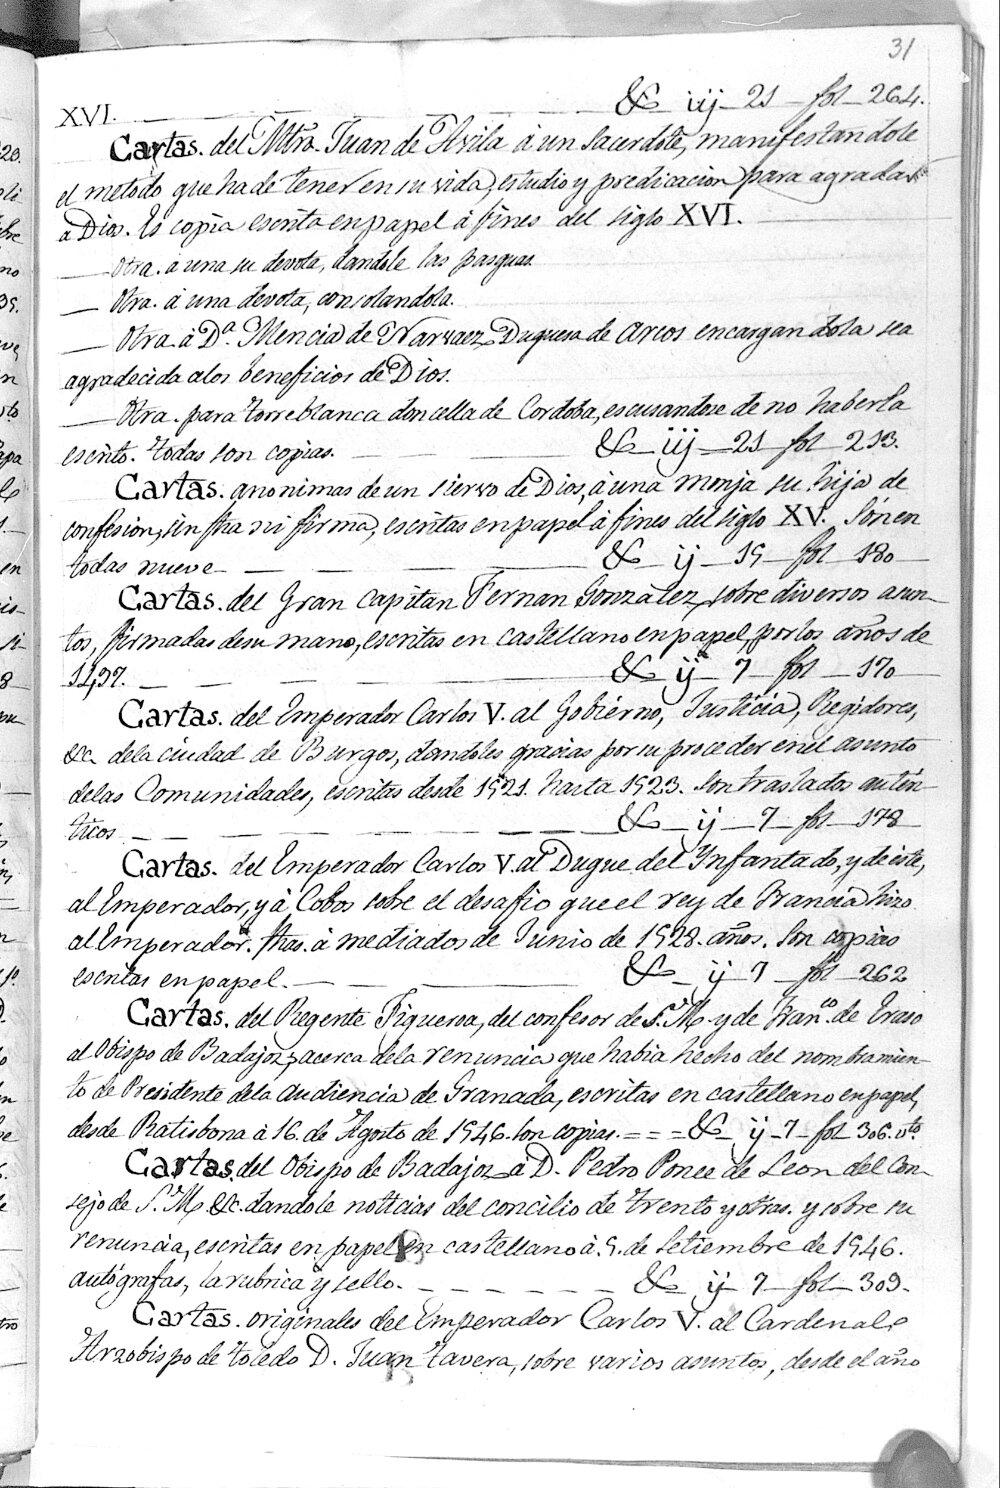 31
XVI. — — — — — — & iij — 21 — fol — 264.
Cartas. del Mtro. Juan de Avila á un Sacerdote, manifestandole
el metodo que ha de tener en su vida, estudio y predicacion para agradar
á Dios. Es copia escrita en papel á fines del siglo XVI. —
— Otra. á una su devota, dandole las pasguas.
— Otra. á una devota, consolandola.
— Otra á Dª. Mencia de Narvaez Duquesa de Arcos encargandola sea
agradecida a los beneficios de Dios.
— Otra. para torreblanca doncella de Cordoba, escusandose de no haberla
escrito. todas son copias. — — & iij — 21 — fol — 213.
Cartas. anonimas de un siervo de Dios, á una monja su hija de
confesion, sin fha ni firma, escritas en papel á fines del siglo XV. Són en
todas nueve — — — — & — ij — 19 — fol — 180 —
Cartas. del Gran Capitan Fernan Gonzàlez, sobre diversos asun-
tos, firmadas de su mano, escritas en castellano en papel, por los años de
1497. — — — — & — ij — 7 — fol — 170
Cartas. del Emperador Carlos V. al Gobierno, Justicia, Regidores,
&c. de la ciudad de Burgos, dandoles gracias por su proceder en el asunto
de las Comunidades, escritas desde 1521. hasta 1523. Son traslados autén-
ticos — — — — — & — ij — 7 — fol — 178
Cartas. del Emperador Carlos V. al Dugue del Ynfantado, y de éste,
al Emperador, y á Cobos sobre el desafio que el rey de Francia hizo
al Emperador. fhas. á mediados de Junio de 1528. años. Son copias
escritas en papel. — — — & — ij 7 — fol — 262
Cartas. del Regente Figueroa, del confesor de S. M. y de Fran.co de Eraso
al Obispo de Badajoz, acerca de la renuncia que habia hecho del nombramien-
to de Presidente de la audiencia de Granada, escritas en castellano en papel,
desde Ratisbona á 16. de Agosto de 1546. son copias. = = = & — ij — 7 — fol 306. vto.
Cartas. del Obispo de Badajoz á D. Pedro Ponce de Leon del Con-
sejo de S. M. &c. dandole noticias del concilio de trento y otras. y sobre su
renuncia, escritas en papel en castellano á 9. de Setiembre de 1546.
autógrafas, la rubrica y sello. — — — — & — ij — 7 — fol — 309.
Cartas. originales del Emperador Carlos V. al Cardenal
Arzobispo de toledo D. Juan tavera, sobre varios asuntos, desde el año